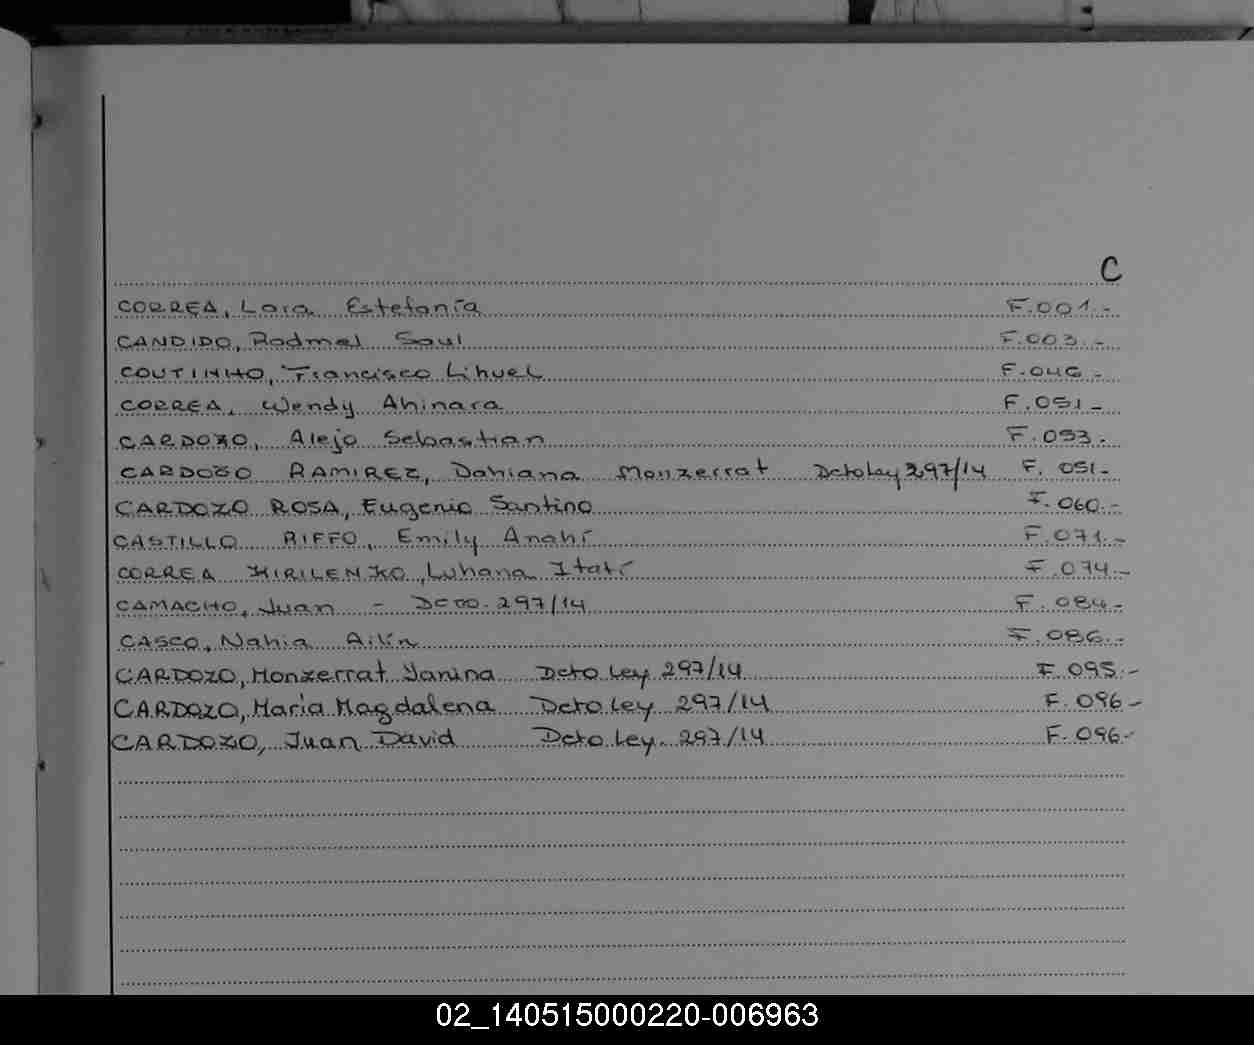 C
CORREA, Lara Estefanía F.001.-
CANDIDO, Rodmel Saul F.003.-
COUTINHO, Francisco Lihuel F.046.-
CORREA, Wendy Ahinara F.051-
CARDOZO, Alejo Sebastian F.053.
CARDOZO RAMIREZ, Dahiana Monzerrat Dcto Ley 297/14 F. 051-
CARDOZO ROSA, Eugenio Santino F.060.-
CASTILLO RIFFO, Emily Anahí F.071.-
CORREA KIRILENKO, Luhana Itatí F.074.-
CAMACHO, Juan - Dcto. 297/14 F.084-
CASCO, Nahia Ailín F.086.-
CARDOZO, Monzerrat Yanina Dcto Ley 297/14 F.095.-
CARDOZO, Maria Magdalena Dcto Ley 297/14 F.096-
CARDOZO, Juan David Dcto Ley. 297/14 F.096-
02_140515000220-006963